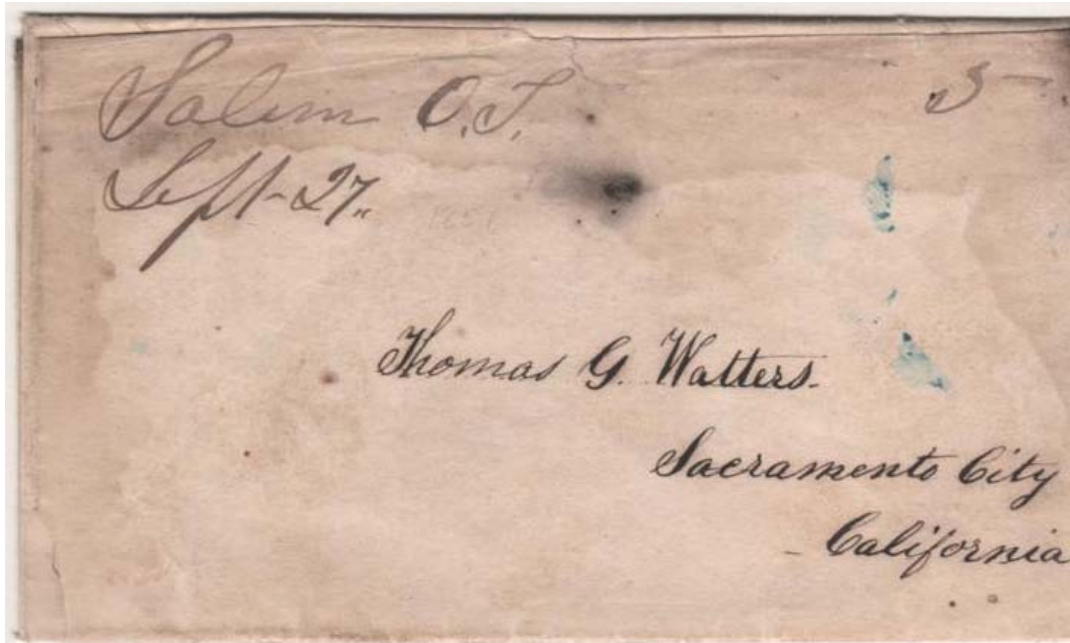 Salem O.T. 5
Sept-27.
Thomas G. Watters.
Sacramento City
California